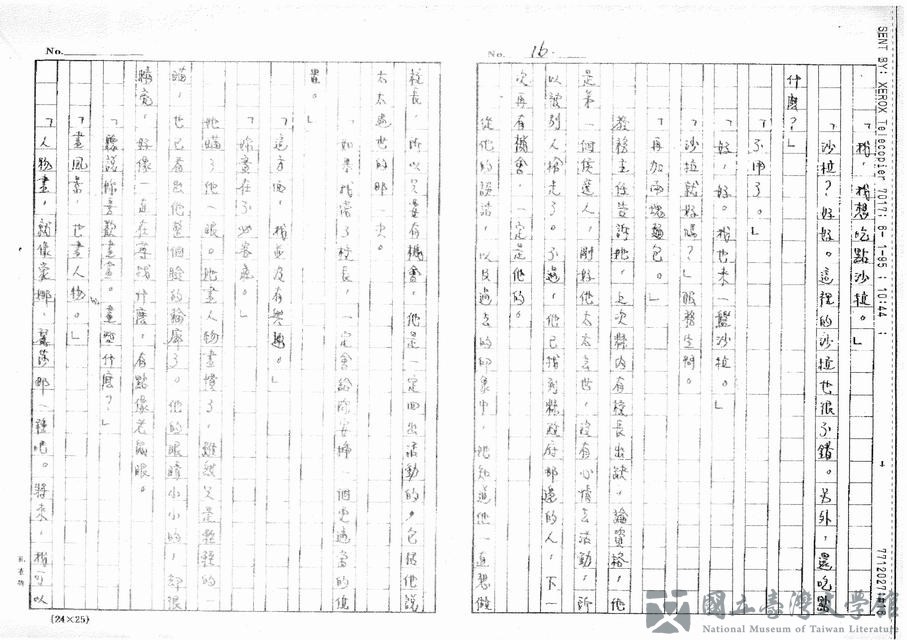 SENT BY: XEROX Telecopier 7017; 6- 1-95 ; 10:44 ;
No. 16.
「我，我想吃點沙拉。」
沙拉？好好。這裡的沙拉也很不錯。另外，還吃點
什麼？」
「不用了。」
「好，好。我也來一盤沙拉。」
「沙拉就好嗎？」服務生問。
「再加兩塊麵包。」
教務主任告訴她，上次縣內有校長出缺，論資格，他
是第一個候選人，剛好他太太去世，沒有心情去活動，所
以被別人搶走了。不過，他已找到縣政府那邊的人，下一
次再有機會，一定是他的。
從他的談話，以及過去的印象中，她知道他一直想做
No.
校長，所以只要有機會，他是一定四出活動的，包括他說
太太過世的那一次。
「如果我當了校長，一定會給妳安排一個更適當的位
置。」
「這方面，我並沒有興趣。」
「妳畫在不必客意。」
她瞄了他一眼。她畫人物畫慣了，雖然只是輕輕的一
瞄，也已看出他整個臉的輪廓了。他的眼睛小小的，卻很
精亮，好像一直在尋找什麼，有點像老鼠眼。
「聽說妳喜歡畫畫。畫些什麼？」
「畫風景，也畫人物。」
「人物畫，就像蒙娜．麗莎那一種吧。將來，我可以
(24×25)
國立臺灣文學館
National Museum of Taiwan Literature